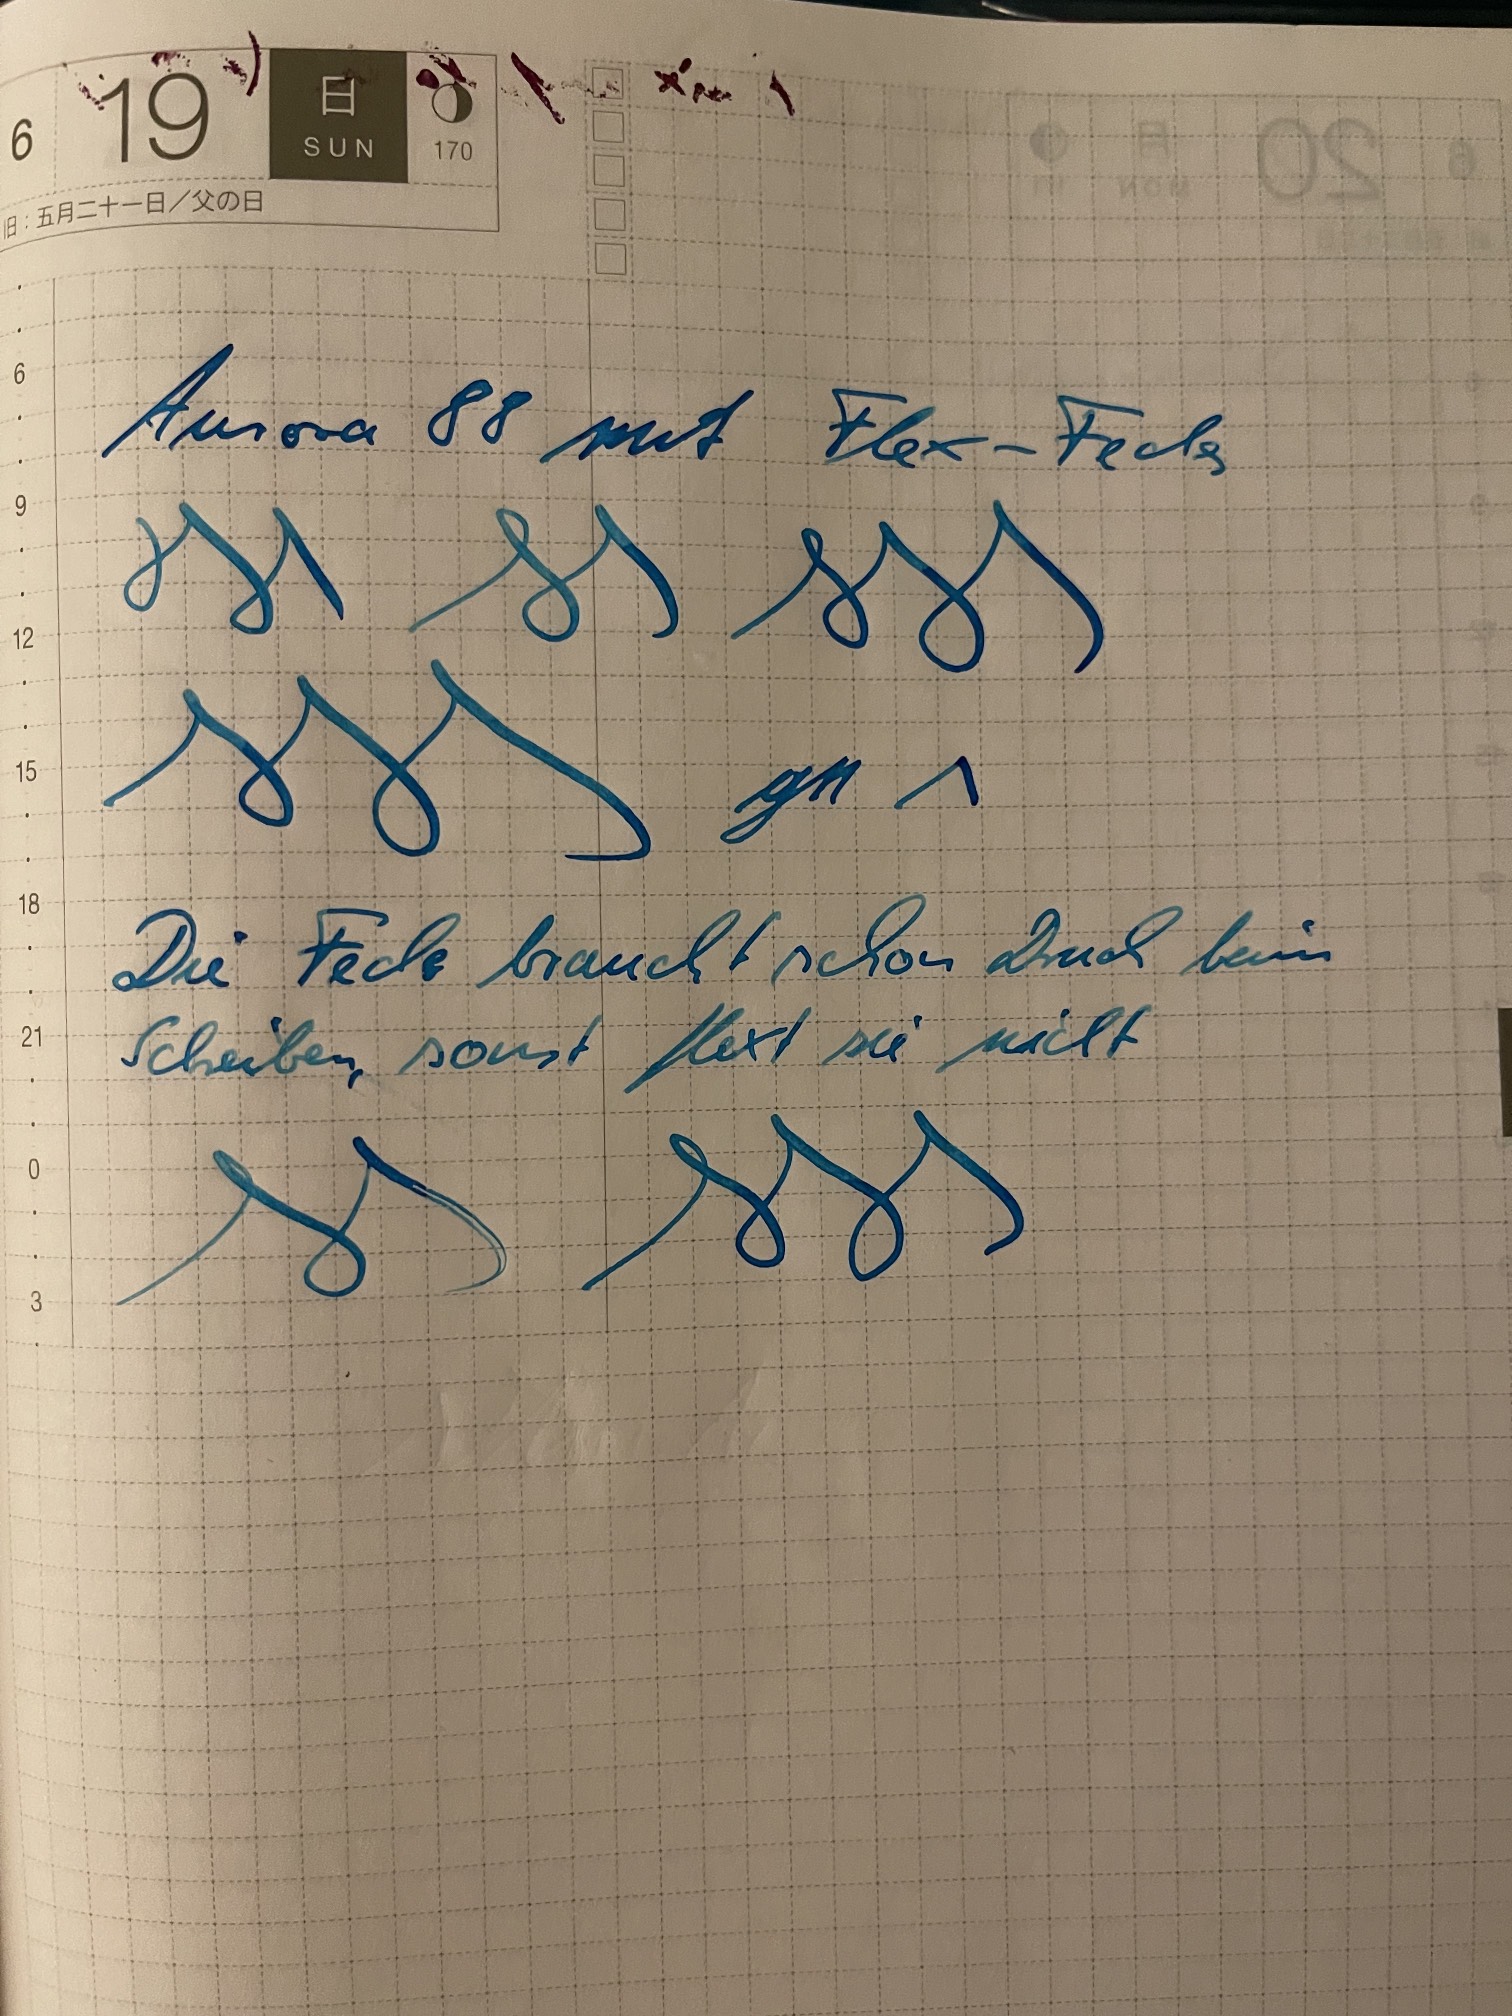 6 19 日 SUN 170
旧：五月二十一日／父の日
6
Aurora 88 mit Flex-Feder
9
12
15
18
Die Feder braucht schon Druck beim
21
Schreiben, sonst flext sie nicht
0
3